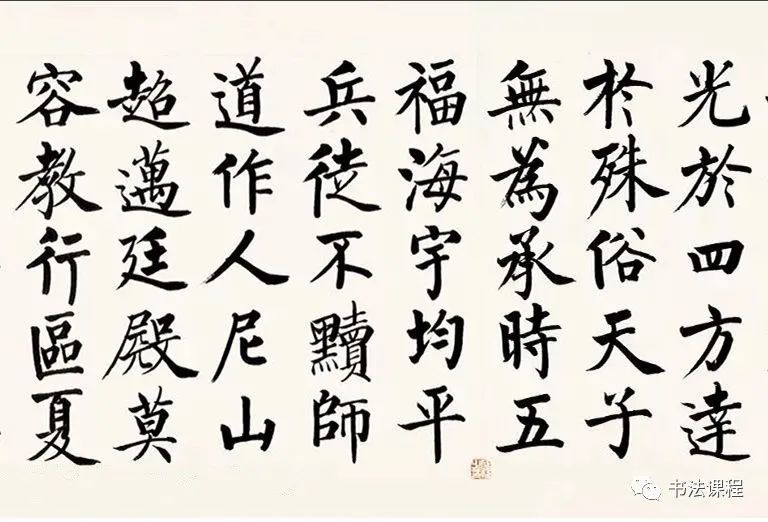 光於四方達
於殊俗天子
無為承時五
福海宇均平
兵徒不黷師
道作人尼山
超邁廷殿莫
容教行區夏
书法课程